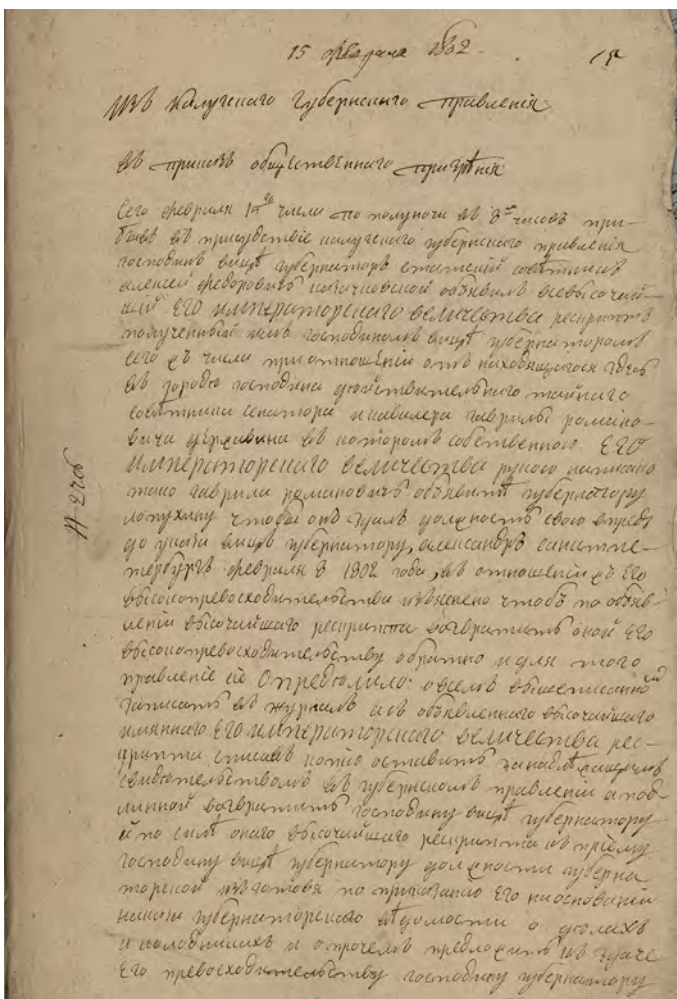 15 февраля 1802.
Изъ Калужскаго Губернскаго правленія
въ приказъ общественнаго призрѣнія
Сего февраля числа по полуночи въ 8 часовъ при-
бывъ въ присудствіе калужскаго губернскаго правленія
господинъ вицъ губернаторъ статской совѣтникъ
алексей федоровичъ козачковской объявилъ всевысочай-
шій ЕГО ИМПЕРАТОРСКАГО величества рескриптъ
полученный имъ господиномъ вицъ губернаторомъ
сего числа при отношеніи отъ находящагося здѣсь
въ городѣ господина дѣйствительнаго тайнаго
совѣтника сенатора и кавалера гаврилы романо-
вича державина въ которомъ собственною ЕГО
ИМПЕРАТОРСКАГО величества рукою написано
тако гаврила романовичъ объявите губернатору
лопухину чтобы онъ здалъ должность свою впредь
до указа вицъ губернатору, александръ санктпе-
тербургъ февраля 8 1802 года, въ отношеніи ЕГО
высокопревосходительства изъяснено чтобъ по объяв-
леніи высочайшаго рескрипта возвратить оной ЕГО
высокопревосходительству обратно и для того
правленіе сіе Определило: о всемъ вышеписанномъ
записать въ журналъ а съ объявленнаго высочайшаго
имяннаго ЕГО ИМПЕРАТОРСКАГО величества рес-
крипта списавъ копію оставить за надлежащимъ
свидетельствомъ въ губернскомъ правленіи а под-
линной возвратить господину вицъ губернатору
и по силѣ онаго высочайшаго рескрипта къ пріему
господину вицъ губернатору должности губерна-
торской изготовя по приказанію ЕГО на основаніи
губернаторскаго вѣдомости о делахъ
и колодникахъ и о прочемъ предложить къ здаче
ЕГО превосходительству господину губернатору